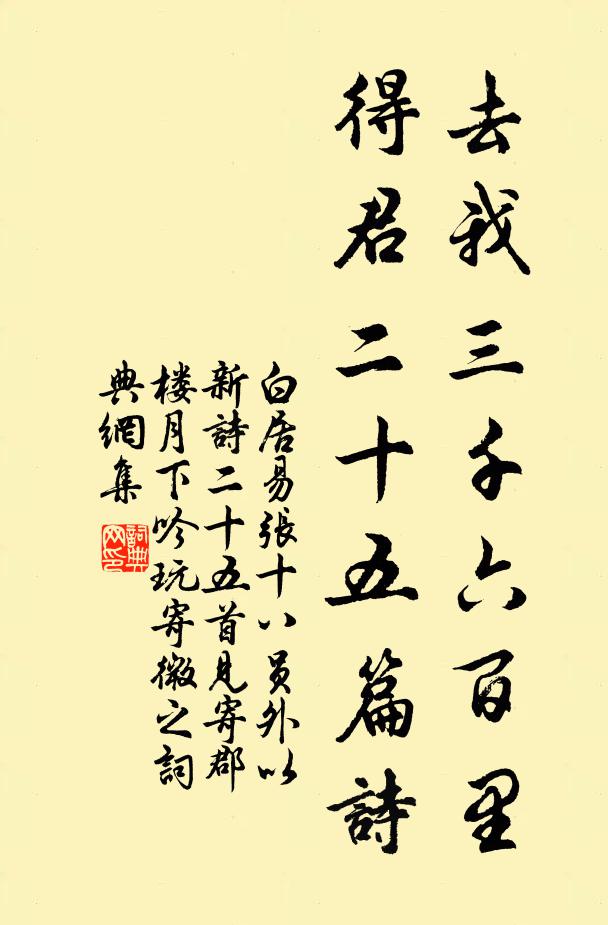 去我三千六百里
得君二十五篇詩
白居易張十八員外以
新詩二十五首見寄郡
楼月下吟玩寄微之詞
典網集
詞典
网印